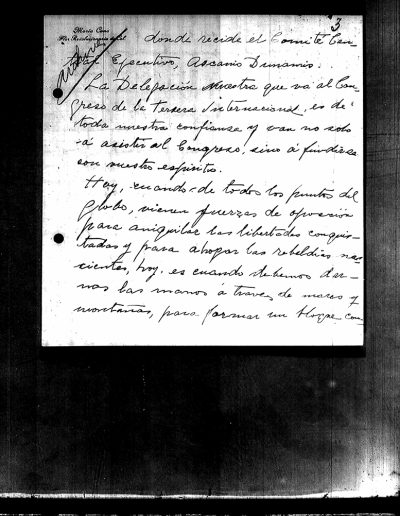 3
Maria Cano
donde recide el Comité Cen-
tral Ejecutivo, Ascanio Dumanis.
La Delegación nuestra que va al Con-
greso de la Tersera Internacional, es de
toda nuestra confianza y van no solo
á asistir al Congreso, sino á fundirse
con vuestro espíritu.
Hoy, cuando de todos los puntos del
globo, vienen fuerzas de opresión
para aniquilar las libertades conquis-
tadas y para ahogar las rebeldías na-
cientes, hoy es cuando debemos dar-
nos las manos á traves de mares y
montañas, para formar un bloque com